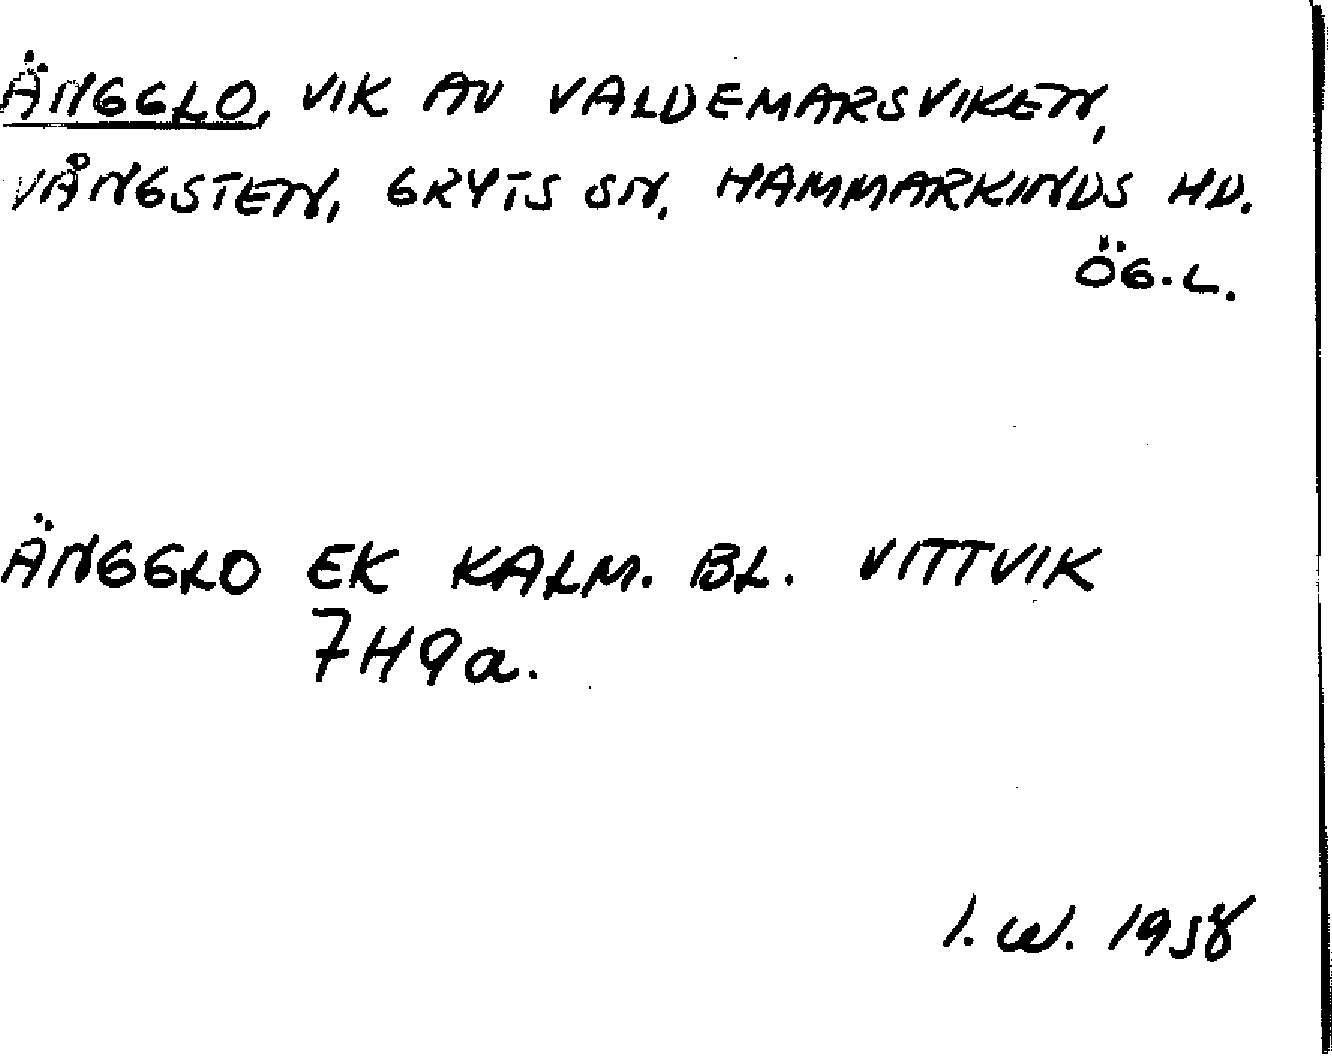 ÄNGGLO, VIK AV VALDEMARSVIKEN,
VÅNGSTEN, GRYTS SN, HAMMARKINDS HD.
ÖG.L.
ÄNGGLO EK KALM. BL. VITTVIK
7H9a.
I.W. 1958